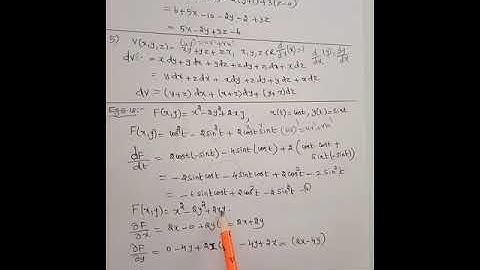 = 6+5x-10-2y-2+3z
= 5x-2y+3z-6
5) V(x,y,z)= xy+yz+zx, x,y,z
dv = xdy+ydx+ydz+zdy+zdx+xdz
= ydx+zdx+xdy+zdy+ydz+xdz
dv = (y+z)dx+(x+z)dy+(y+x)dz
F(x,y)= x²-2y²+2xy, x(t)=cost, y(t)=sint
F(x,y)= cos²t-2sin²t+2cost sint
dF/dt = 2cost(-sint)-4sint(cost)+2(cost cost+sint(-sint))
= -2sintcost-4sintcost+2cos²t-2sin²t
= -6sintcost+2cos²t-2sin²t
F(x,y)= x²-2y²+2xy
∂F/∂x = 2x-0+2y = 2x+2y
∂F/∂y = 0-4y+2x = -4y+2x = (2x-4y)